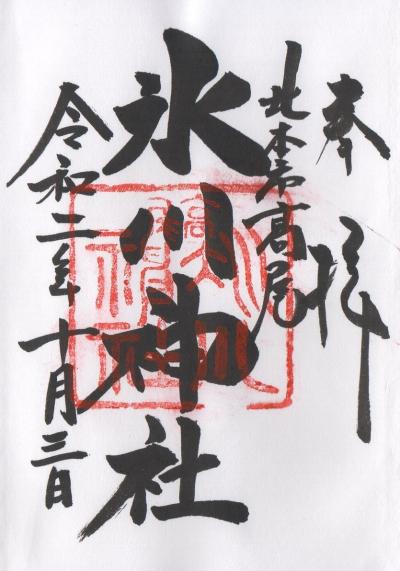 奉拝
北本市高尾
氷川神社
令和二年十月三日